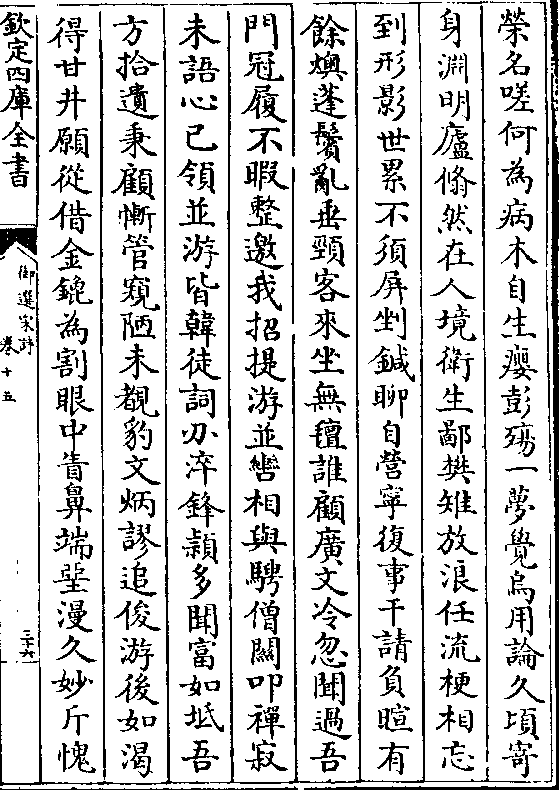 榮名嗟何為病木自生癭彭殤一夢覺烏用論久頃寄
身淵明廬翛然在人境衛生鄙樊雉放浪任流梗相忘
到形影世累不須屏剉鍼聊自營寧復事干請負暄有
餘燠蓬鬢亂垂頸客來坐無氊誰顧廣文冷忽聞過吾
門冠履不暇整邀我招提游並轡相與騁僧關叩禪寂
未語心已領並游皆韓徒詞刃淬鋒穎多聞富如坻吾
方拾遺秉顧慚管窺陋未覩豹文炳謬追俊游後如渴
得甘井願從借金鎞為割眼中眚鼻端堊漫久妙斤愧
欽定四庫全書
御選宋詩
卷十五
三十六